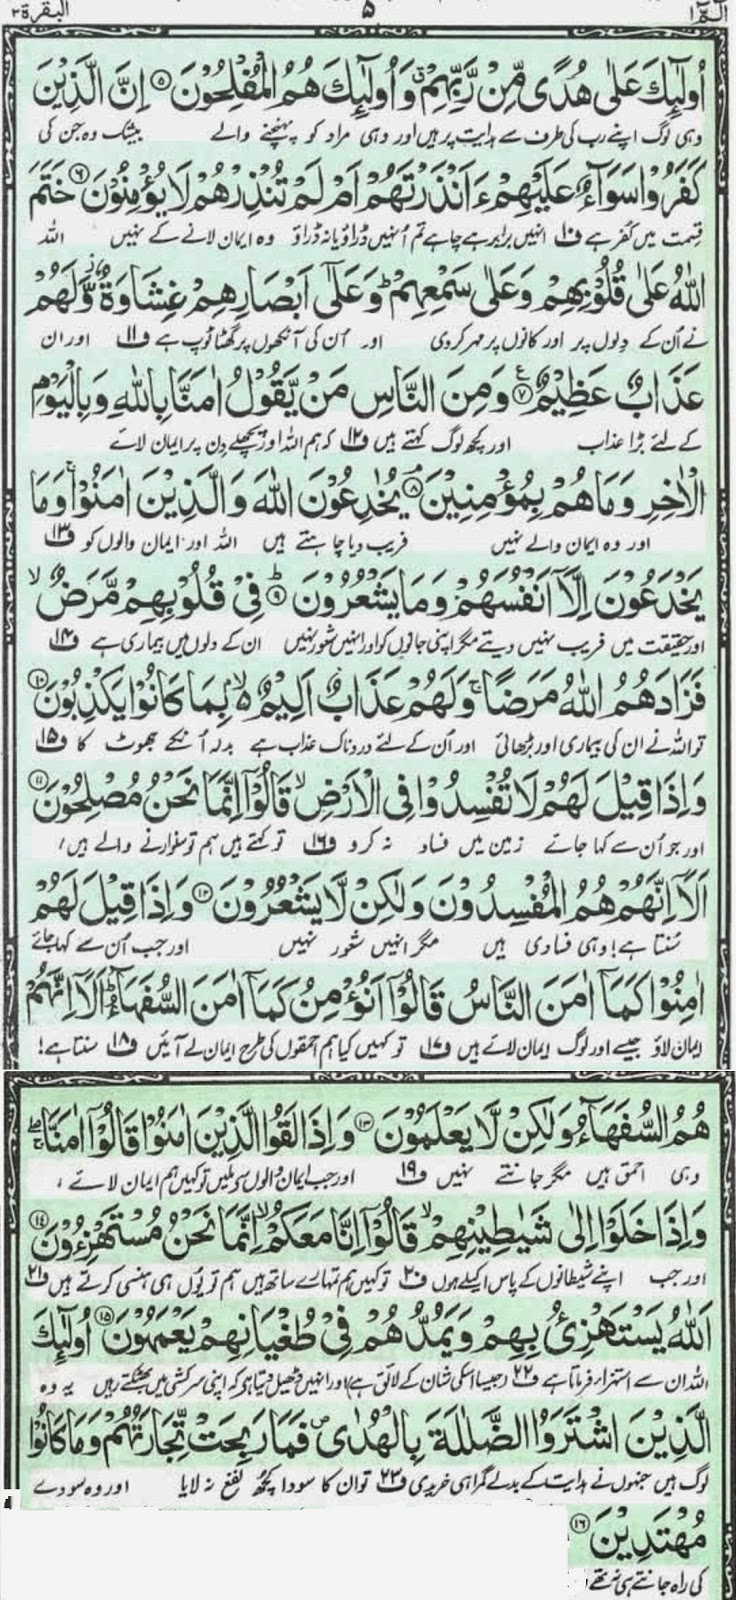 الٓمّٓ ١ ۵ البقرۃ ٢
اُولٰٓئِکَ عَلٰی هُدًی مِّنْ رَّبِّهِمْ ۗ وَ اُولٰٓئِکَ هُمُ الْمُفْلِحُوْنَ ۝۵ اِنَّ الَّذِیْنَ
وہی لوگ اپنے رب کی طرف سے ہدایت پر ہیں اور وہی مراد کو پہنچنے والے بیشک وہ جن کی
کَفَرُوْا سَوَآءٌ عَلَیْهِمْ ءَاَنْذَرْتَهُمْ اَمْ لَمْ تُنْذِرْهُمْ لَا یُؤْمِنُوْنَ ۝۶ خَتَمَ
قسمت میں کفر ہے ف۱۰ انہیں برابر ہے چاہے تم اُنہیں ڈراؤ یا نہ ڈراؤ وہ ایمان لانے کے نہیں اللہ
اللّٰهُ عَلٰی قُلُوْبِهِمْ وَعَلٰی سَمْعِهِمْ ؕ وَعَلٰٓی اَبْصَارِهِمْ غِشَاوَةٌ ؗ وَّلَهُمْ
نے اُن کے دلوں پر اور کانوں پر مہر کردی اور اُن کی آنکھوں پر گھٹا ٹوپ ہے ف۱۱ اور ان
عَذَابٌ عَظِیْمٌ ۝۷ وَمِنَ النَّاسِ مَنْ یَّقُوْلُ اٰمَنَّا بِاللّٰهِ وَبِالْیَوْمِ
کے لئے بڑا عذاب اور کچھ لوگ کہتے ہیں ف۱۲ کہ ہم اللہ اور پچھلے دن پر ایمان لائے
الْاٰخِرِ وَمَا هُمْ بِمُؤْمِنِیْنَ ۝۸ یُخٰدِعُوْنَ اللّٰهَ وَالَّذِیْنَ اٰمَنُوْا ۚ وَمَا
اور وہ ایمان والے نہیں فریب دیا چاہتے ہیں اللہ اور ایمان والوں کو ف۱۳
یَخْدَعُوْنَ اِلَّاۤ اَنْفُسَهُمْ وَمَا یَشْعُرُوْنَ ؕ۝۹ فِیْ قُلُوْبِهِمْ مَّرَضٌ ۙ
اور حقیقت میں فریب نہیں دیتے مگر اپنی جانوں کو اور انہیں شعور نہیں ان کے دلوں میں بیماری ہے ف۱۴
فَزَادَهُمُ اللّٰهُ مَرَضًا ۚ وَلَهُمْ عَذَابٌ اَلِیْمٌۢ ۙ۬ بِمَا کَانُوْا یَکْذِبُوْنَ ۝۱۰
تو اللہ نے ان کی بیماری اور بڑھائی اور اُن کے لئے دردناک عذاب ہے بدلہ اُنکے جھوٹ کا ف۱۵
وَ اِذَا قِیْلَ لَهُمْ لَا تُفْسِدُوْا فِی الْاَرْضِ ۙ قَالُوْۤا اِنَّمَا نَحْنُ مُصْلِحُوْنَ ۝۱۱
اور جو اُن سے کہا جائے زمین میں فساد نہ کرو ف۱۶ تو کہتے ہیں ہم تو سنوارنے والے ہیں،
اَلَاۤ اِنَّهُمْ هُمُ الْمُفْسِدُوْنَ وَلٰکِنْ لَّا یَشْعُرُوْنَ ۝۱۲ وَ اِذَا قِیْلَ لَهُمْ
سُنتا ہے! وہی فسادی ہیں مگر انہیں شعور نہیں اور جب اُن سے کہا جائے
اٰمِنُوْا کَمَاۤ اٰمَنَ النَّاسُ قَالُوْۤا اَنُؤْمِنُ کَمَاۤ اٰمَنَ السُّفَهَآءُ ؕ اَلَاۤ اِنَّهُمْ
ایمان لاؤ جیسے اور لوگ ایمان لائے ہیں ف۱۷ تو کہیں کیا ہم احمقوں کی طرح ایمان لے آئیں ف۱۸ سنتا ہے!
هُمُ السُّفَهَآءُ وَلٰکِنْ لَّا یَعْلَمُوْنَ ۝۱۳ وَ اِذَا لَقُوا الَّذِیْنَ اٰمَنُوْا قَالُوْۤا اٰمَنَّا ۚۖ
وہی احمق ہیں مگر جانتے نہیں ف۱۹ اور جب ایمان والوں سے ملیں تو کہیں ہم ایمان لائے،
وَ اِذَا خَلَوْا اِلٰی شَیٰطِیْنِهِمْ ۙ قَالُوْۤا اِنَّا مَعَکُمْ ۙ اِنَّمَا نَحْنُ مُسْتَهْزِءُوْنَ ۝۱۴
اور جب اپنے شیطانوں کے پاس اکیلے ہوں ف۲۰ تو کہیں ہم تمہارے ساتھ ہیں ہم تو یُوں ہی ہنسی کرتے ہیں ف۲۱
اَللّٰهُ یَسْتَهْزِئُ بِهِمْ وَیَمُدُّهُمْ فِیْ طُغْیَانِهِمْ یَعْمَهُوْنَ ۝۱۵ اُولٰٓئِکَ
اللہ ان سے استہزاء فرماتا ہے ف۲۲ (جیسا اسکی شان کے لائق ہے) اور انہیں ڈھیل دیتا ہے کہ اپنی سرکشی میں بھٹکتے رہیں یہ وہ
الَّذِیْنَ اشْتَرَوُا الضَّلٰلَةَ بِالْهُدٰی ۪ فَمَا رَبِحَتْ تِّجَارَتُهُمْ وَمَا کَانُوْا
لوگ ہیں جنہوں نے ہدایت کے بدلے گمراہی خریدی ف۲۳ تو ان کا سودا کچھ نفع نہ لایا اور وہ سودے
مُهْتَدِیْنَ ۝۱۶
کی راہ جانتے ہی نہ تھے